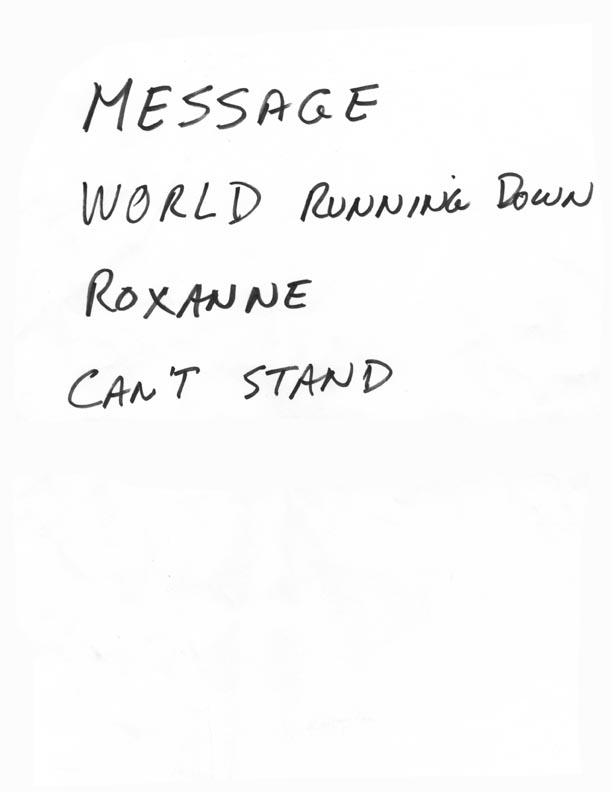 MESSAGE
WORLD RUNNING DOWN
ROXANNE
CAN'T STAND